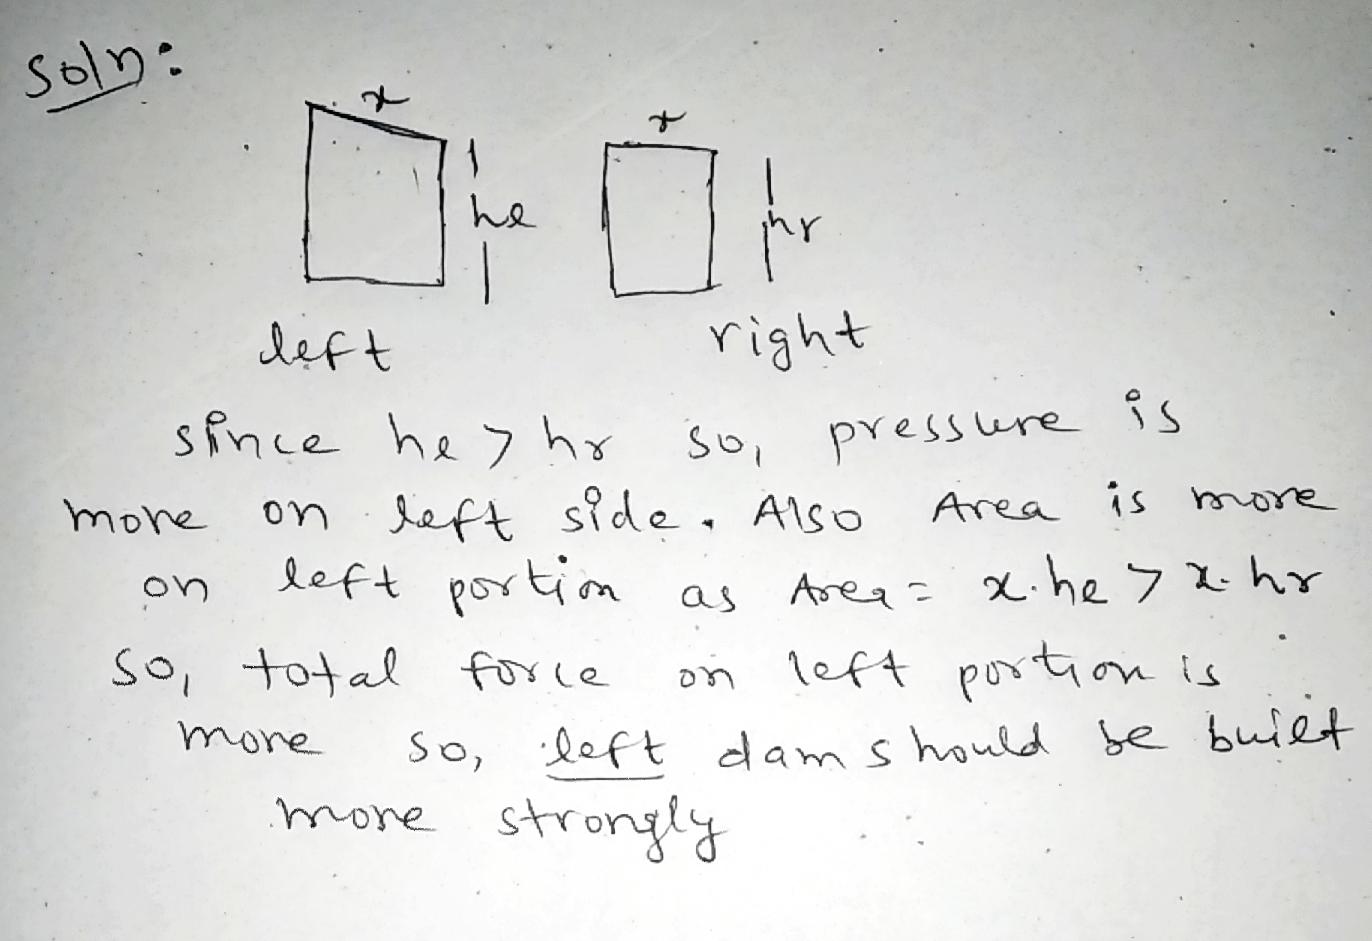 Soln:
x x
he hr
left right
since he > hr so, pressure is
more on left side. Also Area is more
on left portion as Area = x.he > x.hr
so, total force on left portion is
more so, left dam should be built
more strongly